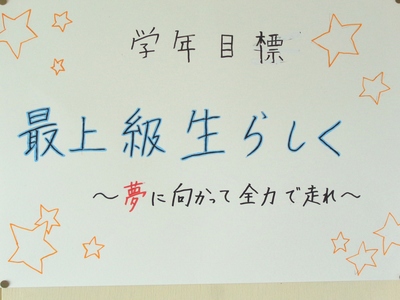 学年目標
最上級生らしく
～夢に向かって全力で走れ～